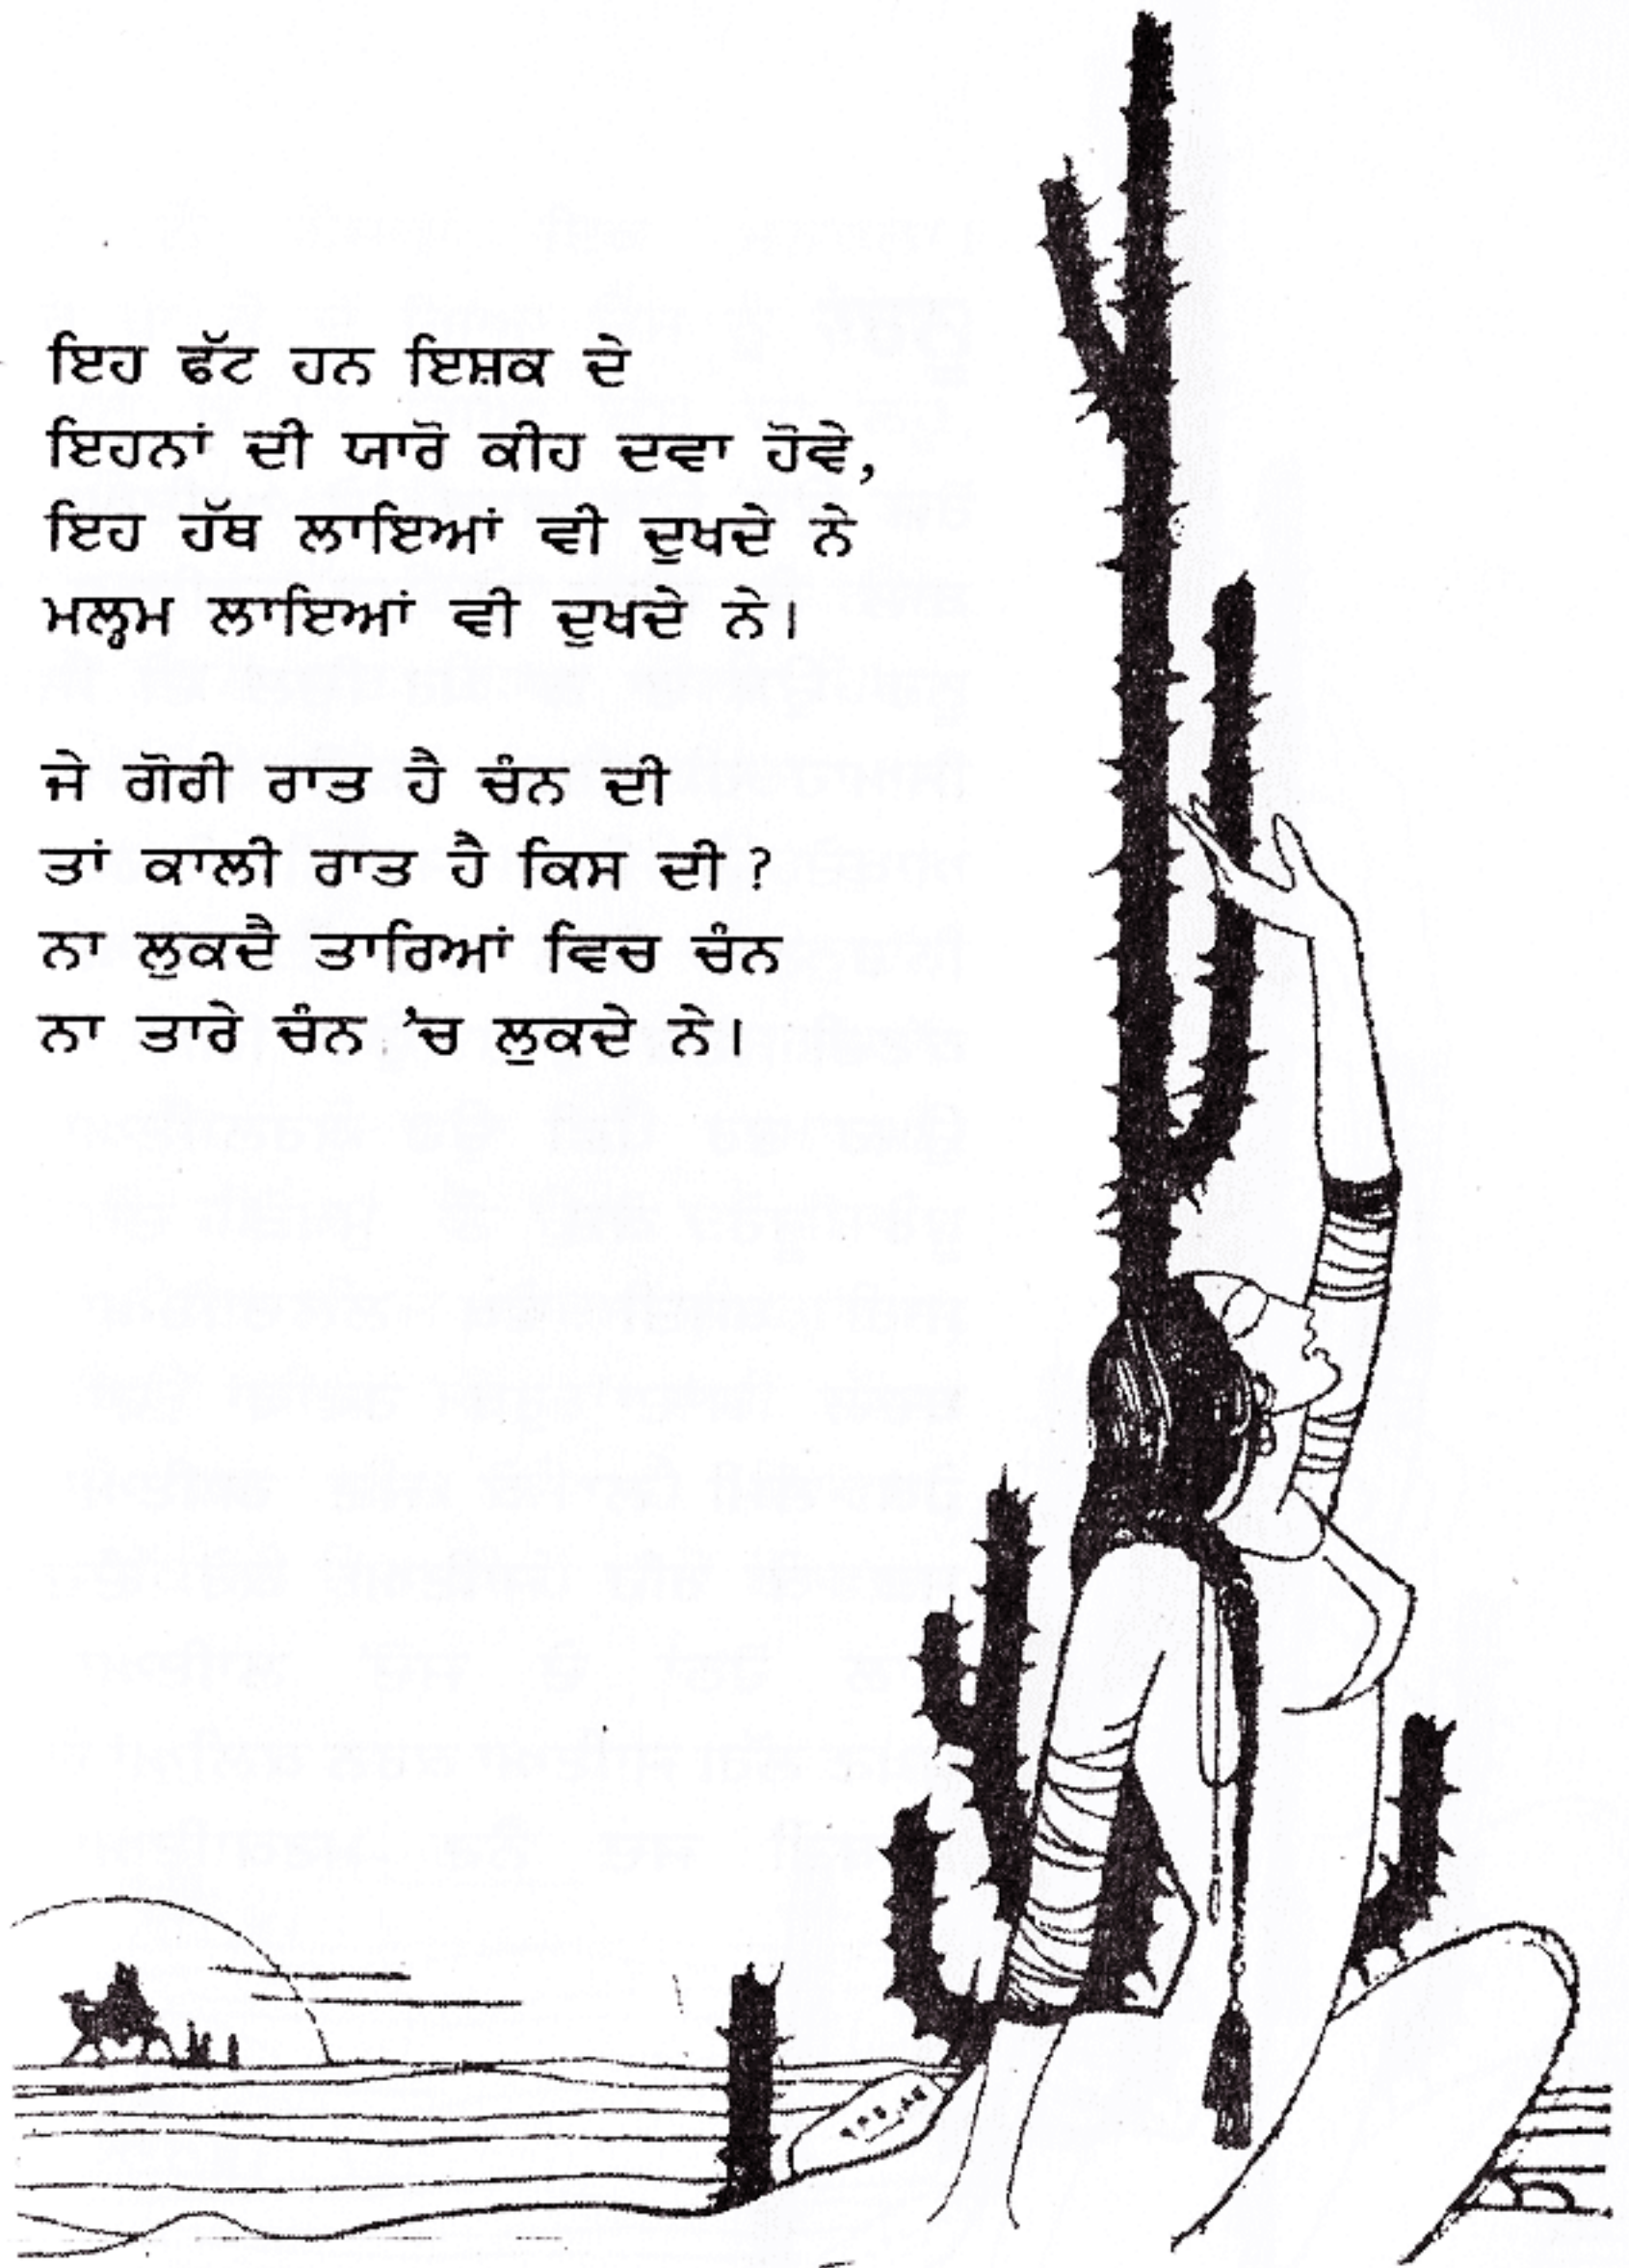 ਇਹ ਫੱਟ ਹਨ ਇਸ਼ਕ ਦੇ
ਇਹਨਾਂ ਦੀ ਯਾਰੋ ਕੀਹ ਦਵਾ ਹੋਵੇ,
ਇਹ ਹੱਥ ਲਾਇਆਂ ਵੀ ਦੁਖਦੇ ਨੇ
ਮਲ੍ਹਮ ਲਾਇਆਂ ਵੀ ਦੁਖਦੇ ਨੇ।
ਜੇ ਗੋਰੀ ਰਾਤ ਹੈ ਚੰਨ ਦੀ
ਤਾਂ ਕਾਲੀ ਰਾਤ ਹੈ ਕਿਸ ਦੀ ?
ਨਾ ਲੁਕਦੈ ਤਾਰਿਆਂ ਵਿਚ ਚੰਨ
ਨਾ ਤਾਰੇ ਚੰਨ 'ਚ ਲੁਕਦੇ ਨੇ।